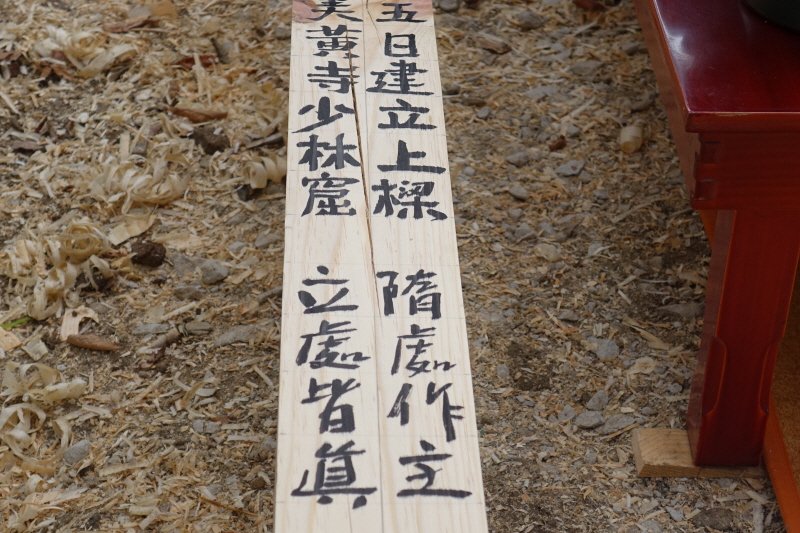 五日建立上樑 隋處作主
美黃寺少林窟 立處皆眞